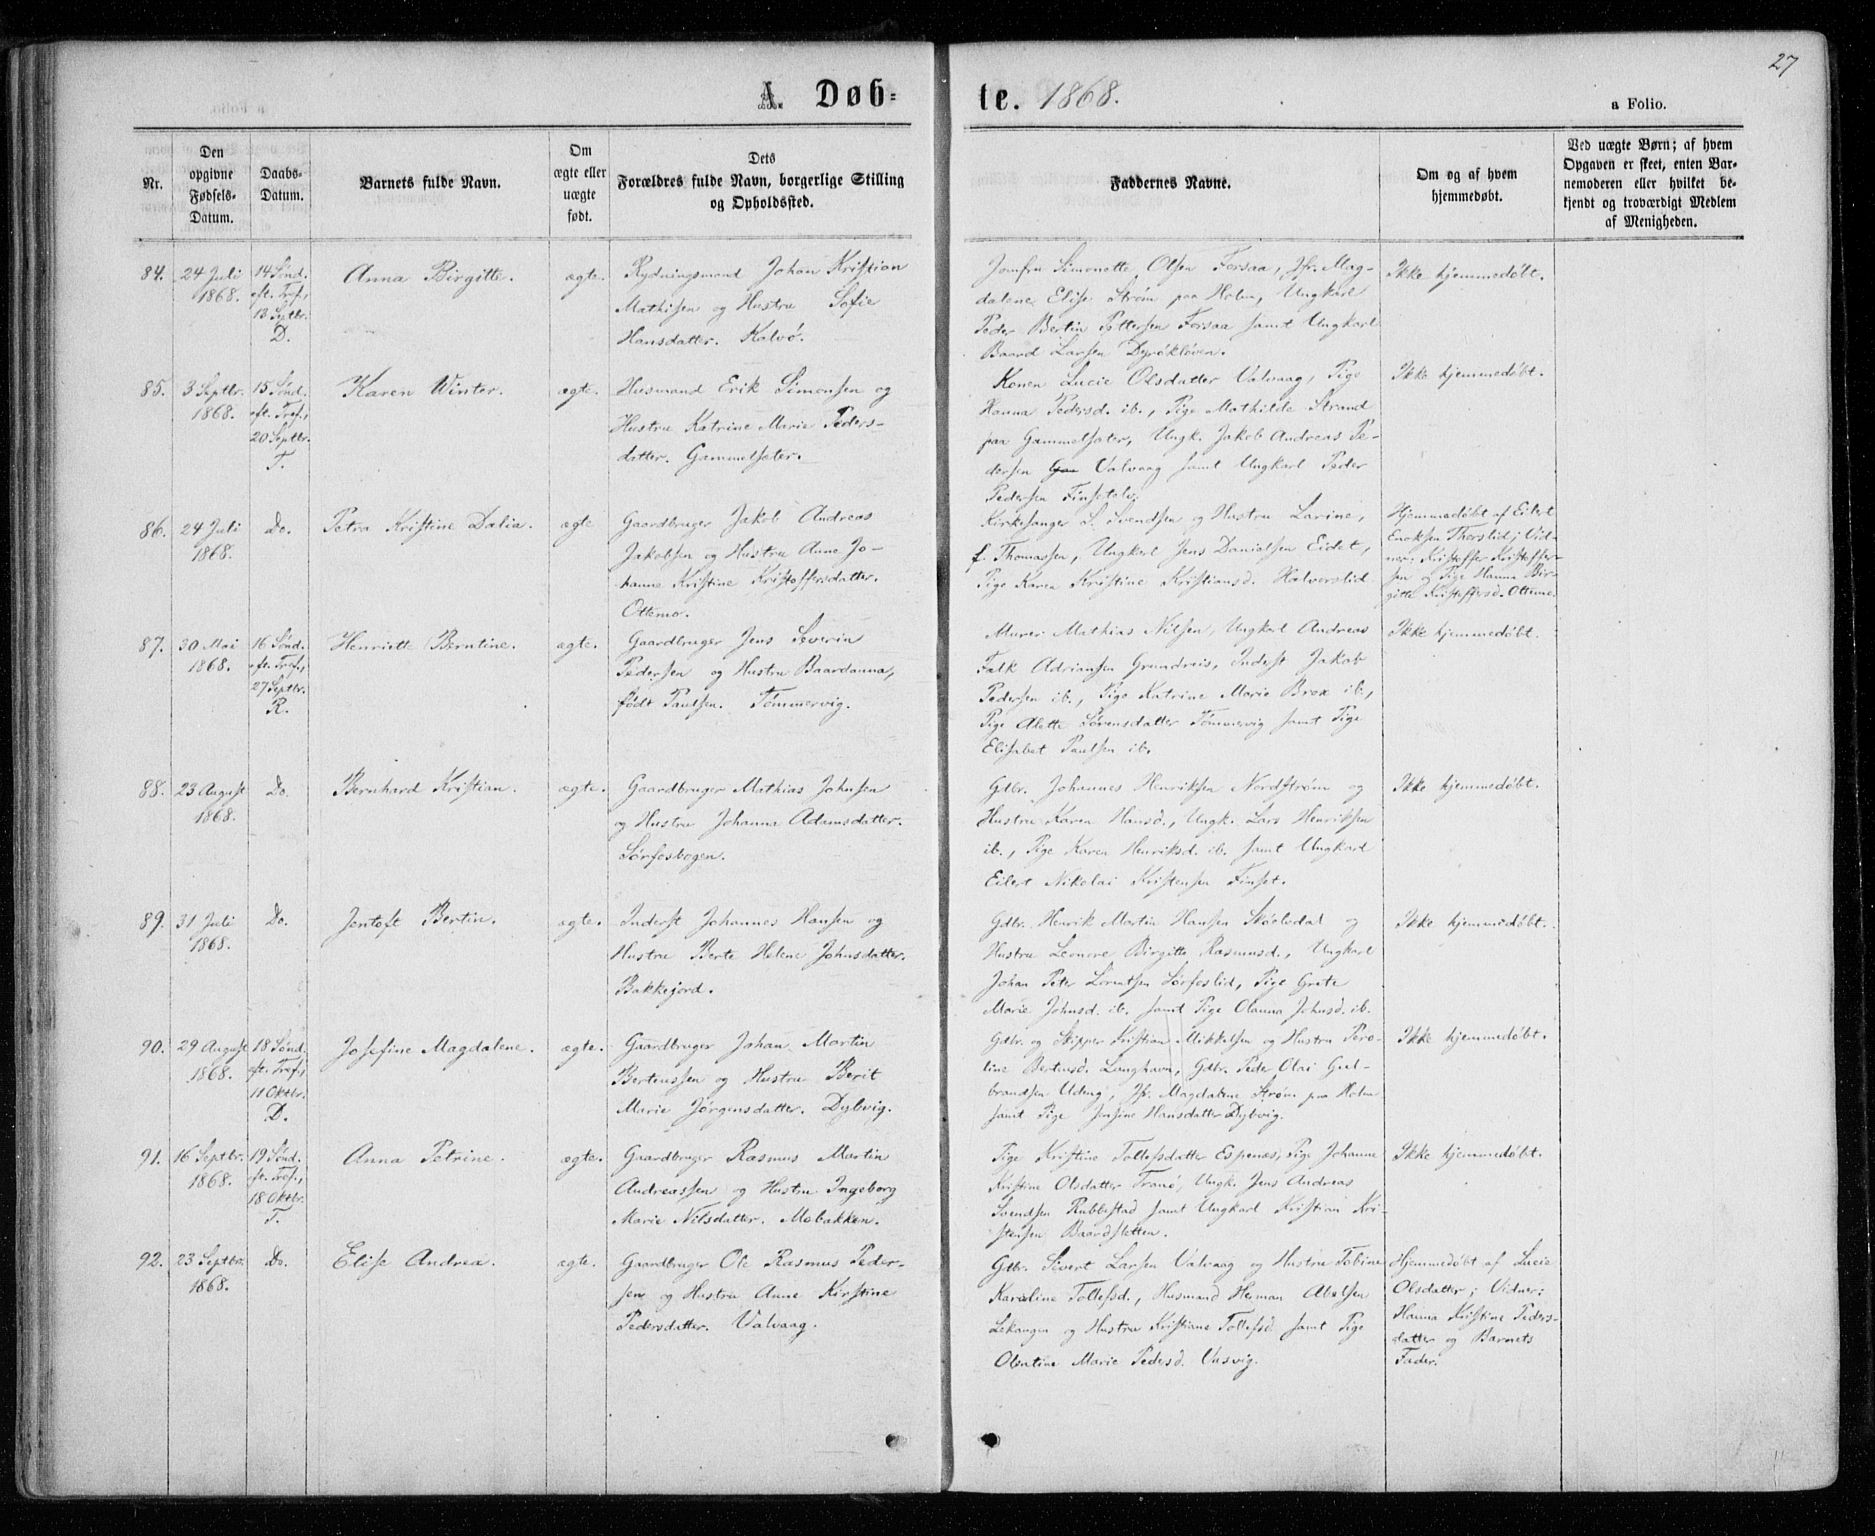 27
A. Døb=
te. 1868.
a Folio.
Nr.
Den opgivne Fødsels-Datum.
Daabs-Datum.
Barnets fulde Navn.
Om ægte eller uægte født.
Dets Forældres fulde Navn, borgerlige Stilling og Opholdssted.
Faddernes Navne.
Om og af hvem hjemmedøbt.
Ved uægte Børn; af hvem Opgaven er skeet, enten Barnemoderen eller hvilket bekjendt og troværdigt Medlem af Menigheden.
84.
24 Juli
1868.
14 Sønd.
eft. Tref.,
13 Septbr.
D.
Anna Birgitte.
ægte.
Rydningsmand Johan Kristian
Mathisen og Hustru Sofie
Hansdatter. Kalvø.
Jomfru Simonette Olsen Forsaa, Jfr. Mag-
dalene Elise Strøm paa Holm, Ungkarl
Peder Bertin Pettersen Forsaa samt Ungkarl
Baard Larsen Dyrökløven.
Ikke hjemmedøbt.
85.
3 Septbr.
1868.
15 Sønd.
eft. Tref.,
20 Septbr.
T.
Karen Winter.
ægte.
Husmand Erik Simonsen og
Hustru Katrine Marie Peders-
datter. Gammelsæter.
Konen Lucie Olsdatter Valvaag, Pige
Hanna Pedersd. ib., Pige Mathilde Strand
paa Gammelsæter, Ungk. Jakob Andreas Pe-
dersen Valvaag samt Ungkarl Peder
Pedersen Finsetelv.
Ikke hjemmedøbt.
86.
24 Juli
1868.
Do.
Petra Kristine Dalia.
ægte
Gaardbruger Jakob Andreas
Jakobsen og Hustru Anne Jo-
hanne Kristine Kristoffersdatter.
Ottemo.
Kirkesanger S. Svendsen og Hustru Larine,
f. Thomassen, Ungkarl Jens Danielsen Eidet,
Pige Karen Kristine Kristiansd. Halvorslid
Hjemmedøbt af Eilert
Enoksen Thorslid; Vid-
ner: Kristoffer Kristoffer-
sen og Pige Hanna Bir-
gitte Kristoffersd. Ottemo.
87.
30 Mai
1868.
16 Sønd.
eft. Tref.,
27 Septbr.
R.
Henriette Berntine.
ægte.
Gaardbruger Jens Severin
Pedersen og Hustru Baardanna,
født Paulsen. Tömmervig.
Murer Mathias Nilsen, Ungkarl Andreas
Falk Adriansen Grundreis, Inderst Jakob
Pedersen ib., Pige Katrine Marie Brox ib.,
Pige Alette Sörensdatter Tömmervig samt Pige
Elisabet Paulsen ib.
Ikke hjemmedøbt.
88.
23 August
1868.
Do.
Bernhard Kristian.
ægte.
Gaardbruger Mathias Johnsen
og Hustru Johanna Adamsdatter.
Sørfosbogen.
Gdbr. Johannes Henriksen Nordstrøm og
Hustru Karen Hansd., Ungk. Lars Henriksen
ib., Pige Karen Henriksd. ib. samt Ungkarl
Eilert Nikolai Kristensen Finset.
Ikke hjemmedøbt.
89.
31 Juli
1868.
Do.
Jentoft Bertin.
ægte.
Inderst Johannes Hansen og
Hustru Berte Helene Johnsdatter.
Bakkejord.
Gdbr. Henrik Martin Hansen Sköelvdal og
Hustru Leonore Birgitte Rasmusd., Ungkarl
Johan Peter Lorentsen Sørfoslid, Pige Grete
Marie Johnsd. ib. samt Pige Olanna Johnsd. ib.
Ikke hjemmedøbt.
90.
29 August
1868.
18 Sønd.
eft. Tref.,
11 Oktbr.
D.
Josefine Magdalene.
ægte.
Gaardbruger Johan Martin
Berteussen og Hustru Berit
Marie Jörgensdatter. Dybvig.
Gdbr. og Skipper Kristian Mikkelsen og Hustru Pero-
line Berteusd. Langhavn, Gdbr. Peder Olai Gul-
brandsen Udeng, Jfr. Magdalene Strøm paa Holm
samt Pige Jensine Hansdatter Dybvig.
Ikke hjemmedøbt.
91.
16 Septbr.
1868.
19 Sønd.
eft. Tref.,
18 Oktbr.
T.
Anna Petrine.
ægte.
Gaardbruger Rasmus Martin
Andreassen og Hustru Ingeborg
Marie Nilsdatter. Mobakken.
Pige Kristine Tollefsdatter Espenes, Pige Johanne
Kristine Olsdatter Tranö, Ungk. Jens Andreas
Svendsen Rubbestad samt Ungkarl Kristian Kri-
stensen Baardsletten.
Ikke hjemmedøbt.
92.
23 Septbr.
1868.
Do.
Elise Andrea.
ægte.
Gaardbruger Ole Rasmus Peder-
sen og Hustru Anne Kirstine
Pedersdatter. Valvaag.
Gdbr. Sivert Larsen Valvaag og Hustru Tobine
Karoline Tollefsd., Husmand Herman Abelsen
Lekangen og Hustru Kristiane Tollefsd. samt Pige
Olentine Marie Pedersd. Vasvig.
Hjemmedøbt af Lucie
Olsdatter; Vidner:
Hanna Kristine Peders-
datter og Barnets
Fader.